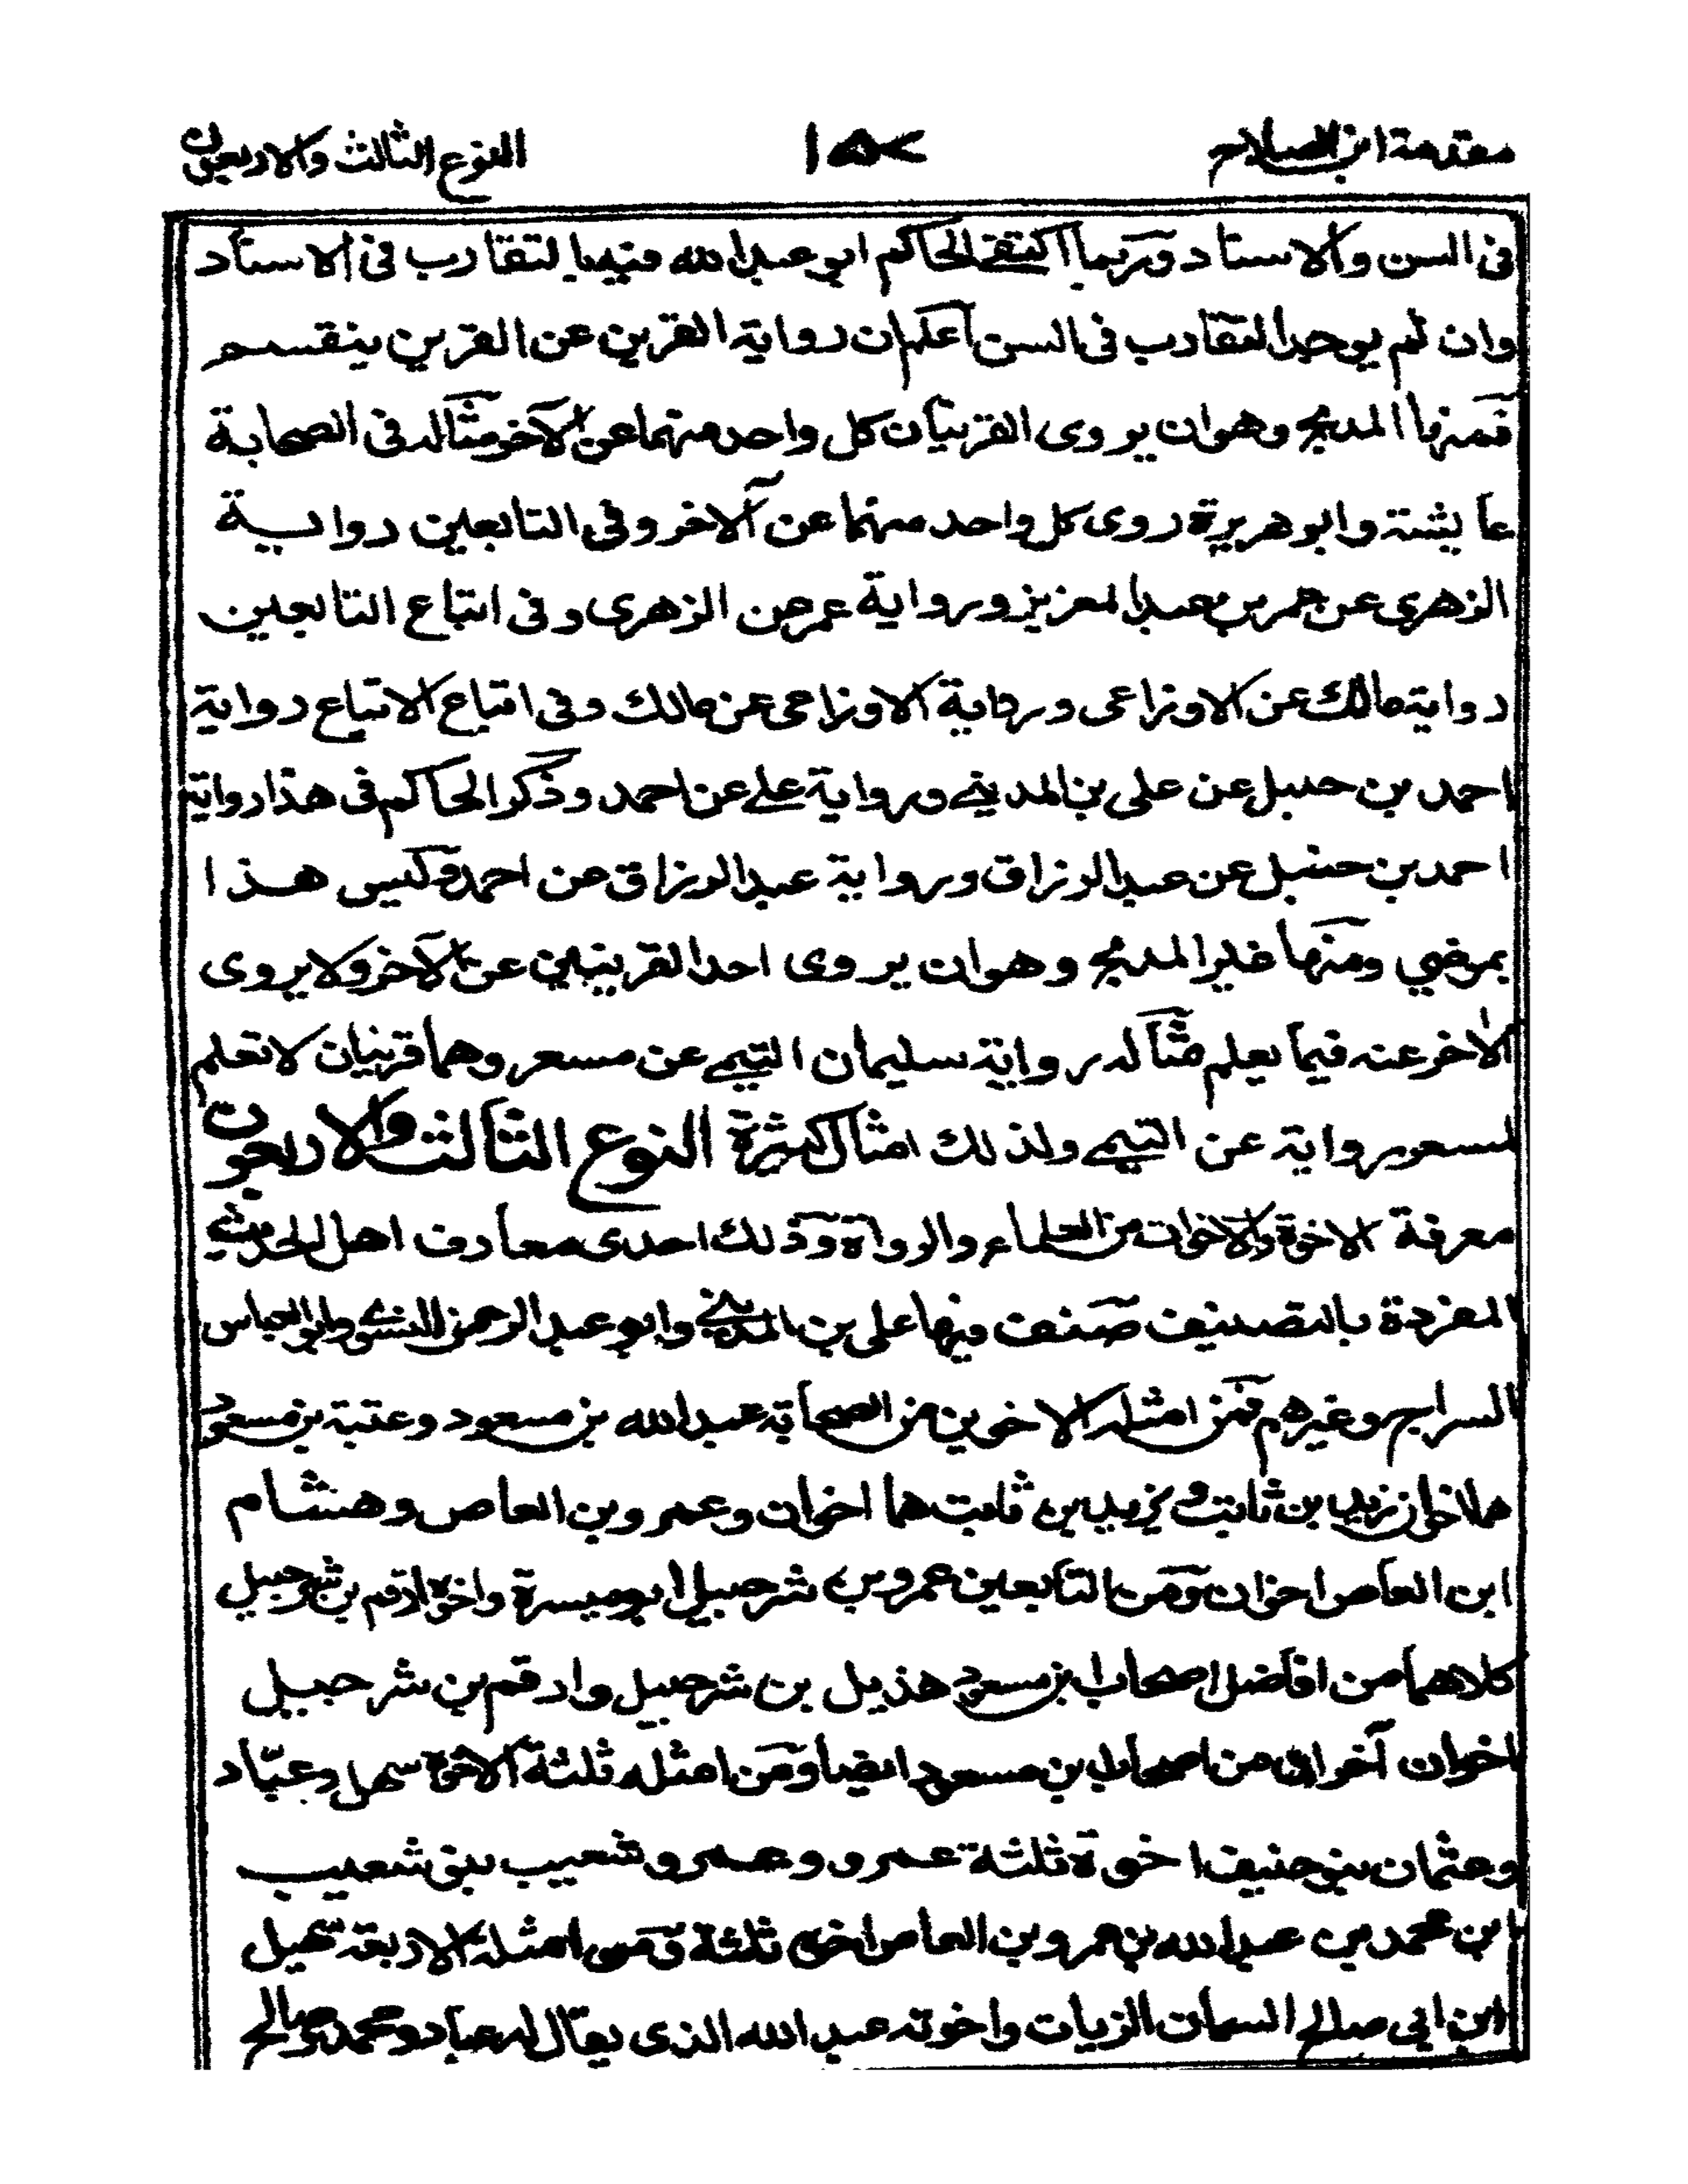 مقدمة ابن الصلاح ١٥٧ النوع الثالث والاربعون
فى السن والاسناد وربما اكتفى الحاكم ابو عبد الله فيهما بالتقارب فى الاسناد
وان لم يوجد التقارب فى السن اعلم ان رواية القرين عن القرين ينقسم
فمنها المدبج وهو ان يروى القرينان كل واحد منهما عن الآخر مثاله فى الصحابة
عايشة وابو هريرة روى كل واحد منهما عن الآخر وفى التابعين رواية
الزهري عن عمر بن عبد العزيز ورواية عمر عن الزهرى وفى اتباع التابعين
رواية مالك عن الاوزاعى ورواية الاوزاعى عن مالك وفى اتباع الاتباع رواية
احمد بن حنبل عن على بن المدينے ورواية علے عن احمد وذكر الحاكم فى هذا رواية
احمد بن حنبل عن عبد الرزاق ورواية عبد الرزاق عن احمد وليس هذا
بمرضي ومنها غير المدبج وهو ان يروى احد القرينين عن الآخر ولا يروى
الآخر عنه فيما يعلم مثاله رواية سليمان التيمے عن مسعر وهما قرينان لا تعلم
لمسعر رواية عن التيمے ولذلك امثال كثيرة النوع الثالث والاربعون
معرفة الاخوة والاخوات من العلماء والرواة وذلك احدى معارف اهل الحديث
المفردة بالتصنيف صنف فيها على بن المدينے وابو عبد الرحمن النسوے وابو العباس
السراج وغيرهم فمن امثلة الاخوين من الصحابة عبد الله بن مسعود وعتبة بن مسعود
هما اخوان زيد بن ثابت ويزيد بن ثابت هما اخوان وعمرو بن العاص وهشام
ابن العاص اخوان ومن التابعين عمرو بن شرحبيل ابو ميسرة واخوه ارقم بن شرحبيل
كلاهما من افاضل اصحاب ابن مسعود هذيل بن شرحبيل وارقم بن شرحبيل
اخوان آخران من اصحاب ابن مسعود ايضا ومن امثلة ثلثة الاخوة سهل وعبّاد
وعثمان بنى حنيف اخوة ثلثة عمرو وعمر وشعيب بنى شعيب
ابن محمد بن عبد الله بن عمرو بن العاص اخوة ثلثة ومن امثلة الاربعة سهيل
ابن ابى صالح السمان الزيات واخوته عبد الله الذى يقال له عباد ومحمد وصالح